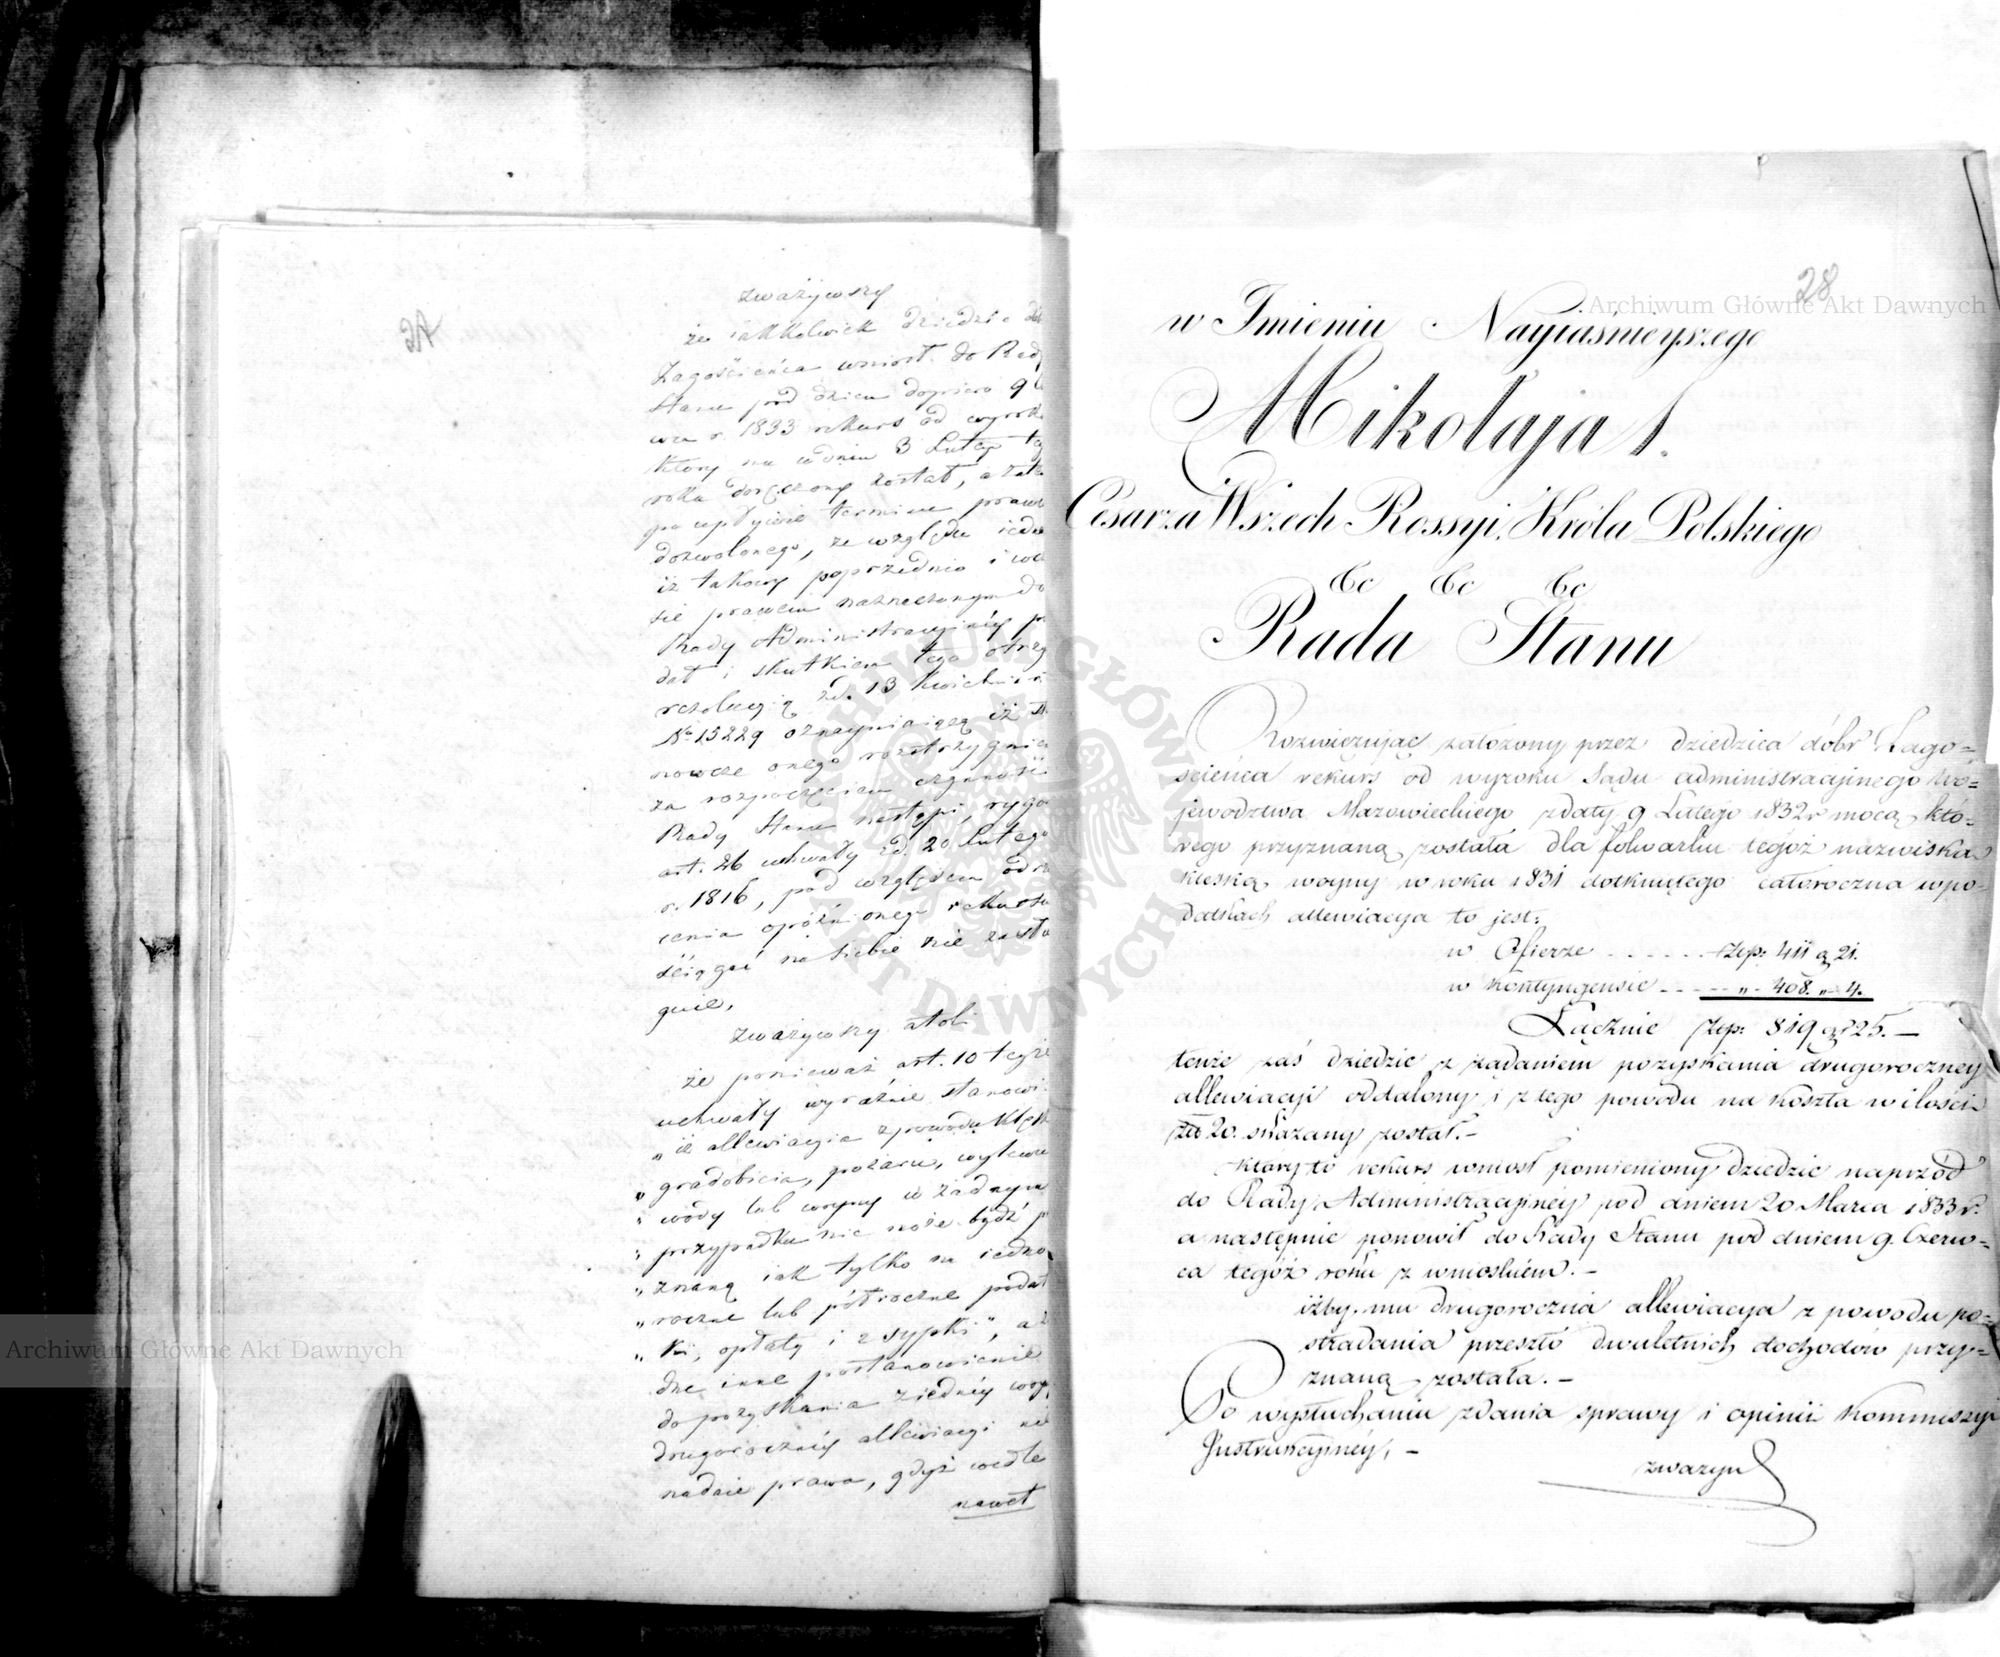 zważywszy
że iakkolwiek dziedzic dó
Zagościeńca wniosł do Rady
Stanu pod dniem dopiero 9 C
wca r. 1833 rekurs od wyrok
który mu w dniu 3 Luteg teg
roku doręczony został, a zat
po upływie terminu prawe
dozwolonego, ze względu iedn
iż takowy poprzednio i w
sie prawem naznaczonym do
Rady Administracyjnéy p
dał i skutkiem tego otrzy
rezolucyą zd. 13 Kwietnia r
No 15229 oznaymiaiącą iż st
nowcze onego rozstrzygnie
za rozpoczęciem czynnośi
Rady Stanu nastąpi, rygo
art. 26 uchwały zd. 20 Lutego
r. 1816, pod względem odrzu
cenia opóźnionego rekursu
ściągać na siebie nie zasłu
guie,
zważywszy atoli
że ponieważ art. 10 teyże
uchwały wyraźnie stanowi
„ iż allewiacyia z powodu klęsk
„ gradobicia, pożaru, wylewu
„ wody lub woyny w żadnym
„ przypadku nie może bydź p
„ znaną iak tylko na iedno
„ roczne lub półroczne podat
„ ki, opłaty i zsypki", a ż
dne inne postanowienie
do pozyskania z iednéy woy
drugorocznéy allewiacyi nie
nadaie prawa, gdyż wedle
nawet
28
w Imieniu Nayiaśnieyszego
Mikołaja I.
Cesarza Wszech Rossyi, Króla Polskiego
&c &c &c
Rada Stanu
Rozwięzując założony przez dziedzica dóbr Zago=
ścieńca rekurs od wyroku Sądu administracyinego Wo=
jewództwa Mazowieckiego z daty 9 Lutego 1832 r mocą któ=
rego przyznaną została dla folwarku tegóż nazwiska
klęską woyny w roku 1831 dotkniętego całoroczna w po=
datkach allewiacya to jest:
w Ofierze - - - - - złp: 411 g 21.
w Kontyngensie - - - - „ - 408. „ 4.
Łącznie złp: 819 gr 25. —
tenże zaś dziedzic z żądaniem pozyskania drugoroczney
allewiacyi oddalony, i z tego powodu na koszta w ilości
złt 20. skazany został. -
który to rekurs wniosł pomieniony dziedzic naprzód
do Rady Administracyjnéy pod dniem 20 Marca 1833 r.
a następnie ponowił do Rady Stanu pod dniem 9. Czerw=
ca tegóż roku z wnioskiem. -
iżby mu drugoroczna allewiacya z powodu po=
stradania przeszło dwuletnich dochodów przy=
znaną została. -
Po wysłuchaniu zdania sprawy i opinii Kommissyi
Instrukcyinéy, -
zważyw
Archiwum Główne Akt Dawnych
Archiwum Główne Akt Dawnych
ARCHIWUM GŁÓWNE AKT DAWNYCH